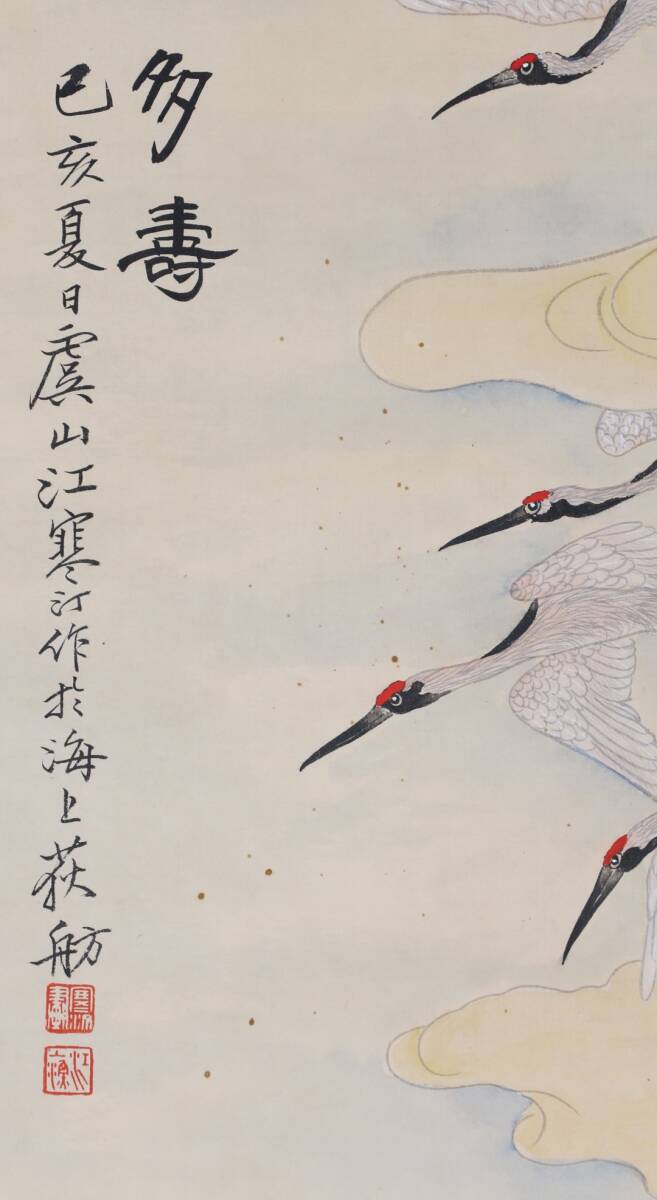 多壽
己亥夏日虞山江寒汀作於海上荻舫